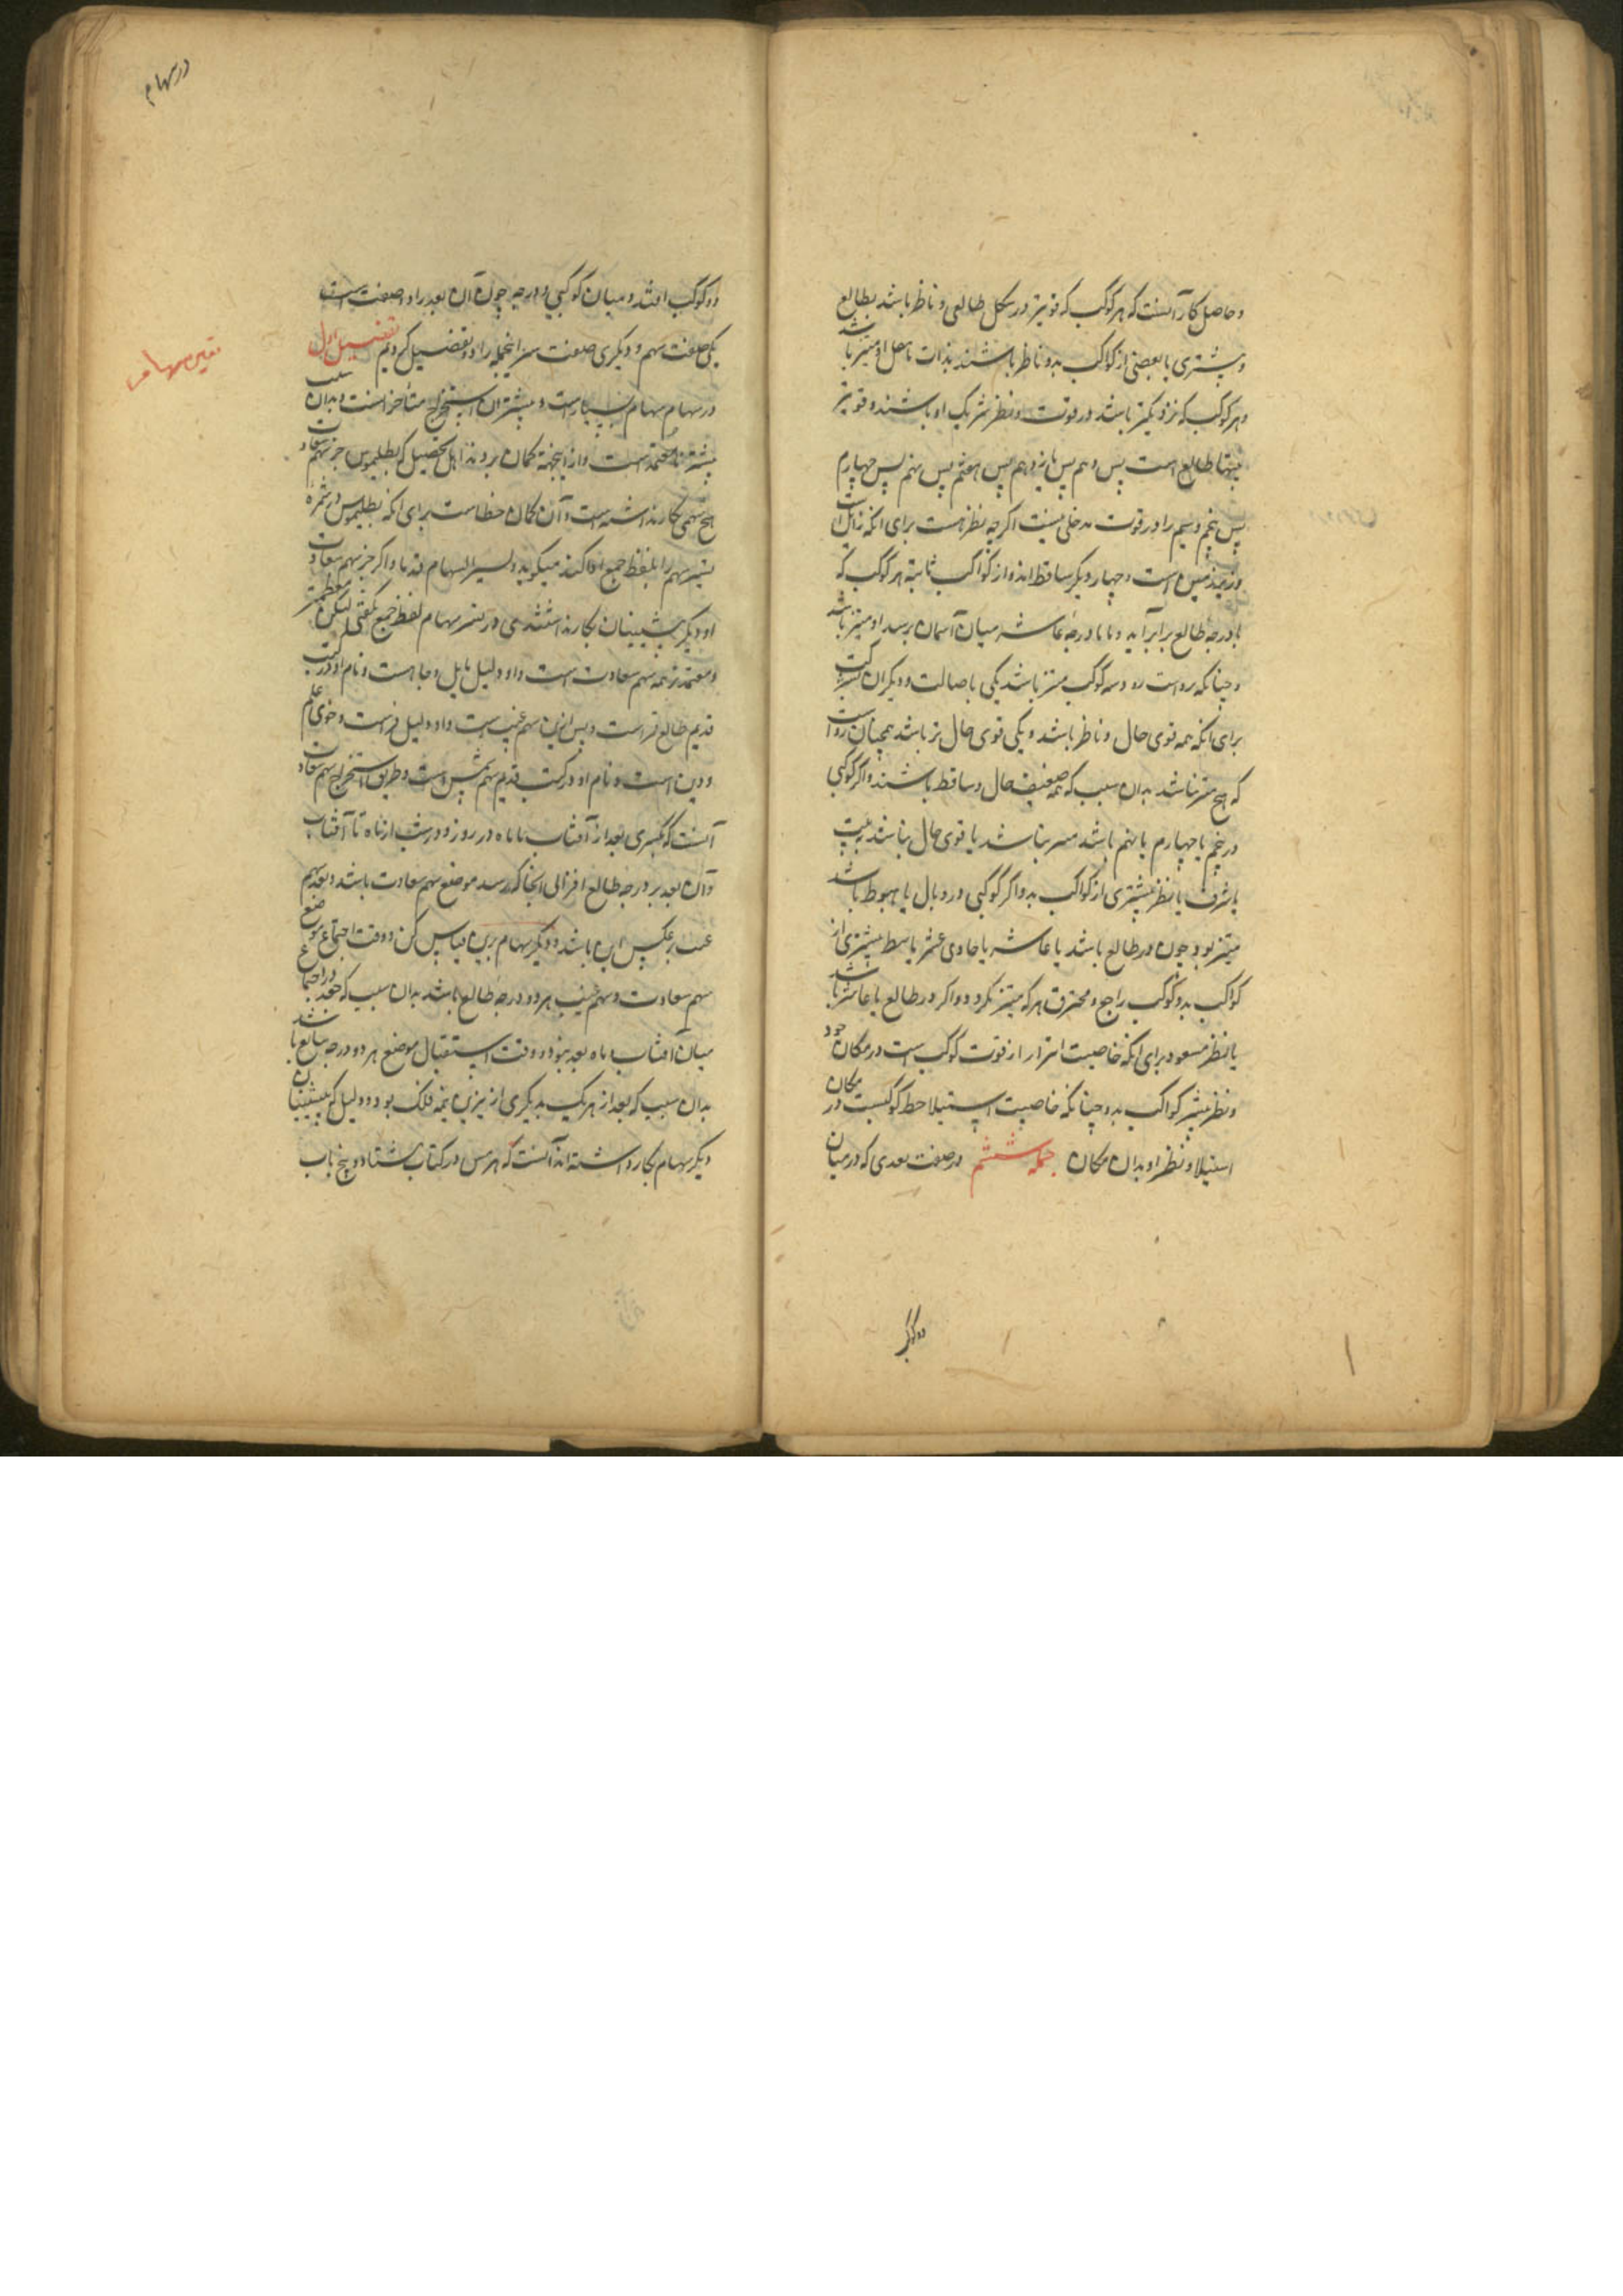 و حاصل کار آنست که هر کوکب که قویتر در شکل طالعی و ناظر باشد بطالع
و بیشتری یا بعضی از کواکب بدو ناظر باشند بذات یا محل او مبتز باشد
و هر کوکب که نزدیکتر باشد در قوت و نظر شریک او باشند و قویتر
بیتها طالع است پس دهم پس یازدهم پس هفتم پس نهم پس چهارم
پس پنجم و سیم را در قوت مدخلی نیست اکرچه نظر هست برای انکه زایل است
است و چهار دیکر ساقط اند و از کواکب ثابته هر کوکب که
با درجهٔ طالع برآید و یا با درجهٔ عاشر میان آسمان رسد او مبتز باشد
و چنانکه رواست دو و سه کوکب مبتز باشد یکی باصالت و دیکران بشرکت
برای انکه همه قوی حال و ناظر باشد و یکی قوی حال تر باشد همچنان رواست
که هیچ مبتز نباشد بدان سبب که همه ضعیف حال و ساقط باشند و اکر کوکبی
در پنجم یا چهارم یا نهم باشد مبتز نباشد یا قوی حال نباشد به بیت
یا شرف یا نظر بیشتری از کواکب بدو و اکر کوکبی در وبال یا هبوط باشد
مبتز بود چون در طالع باشد یا عاشر یا حادی عشر یا بنظر بیشتری از
کواکب بدو کوکب راجع و محترق هر که مبتز نکردد و اکر در طالع یا عاشر باشد
یا بنظر مسعود برای انکه خاصیت ابتزاز از قوت کوکب است در مکان خود
و نظر بیشتر کواکب بدو چنانکه خاصیت استیلا حظ کوکبست در مکان
استیلا و نظر او بدان مکان جمله ششم در صفت بعدی که در میان
دو کوکب
در سهام
دو کوکب افتد و میان کوکبی و درجه چون آن بعد را دو صفت است
یکی صفت سهم و دیکری صفت این جمله را دو تفضیل کردیم تفضیل اول
در سهام سهام بسیار است و بیشتر آن استخراج متأخرانست و بدان سبب
بیشتر نا معتمد است و از اینجهة کمان بردند اهل تحصیل که بطلمیوس جز سهم سعادت
هیچ سهمی بکار نداشته است و آن کمان خطاست برای انکه بطلمیوس در ثمره
سهم را بلفظ جمع میکوید و اکر جز سهم سعادت
او و دیکر پیشینیان بکار نداشتندی در سهام لفظ جمع نکفتی لیکن معظمتر
و معتمدتر همه سهم سعادت است و او دلیل مال و جاه است و نام او در کتب
قدیم طالع قمر است و پس از این سهم غیب است و او دلیل و خوی علم
و دین است و نام او در کتب قدیم سهم شمس است و طریق استخراج سهم سعادت
آنست که بکیری بعد از آفتاب تا ماه در روز و در شب از ماه تا آفتاب
و آن بعد بر درجه طالع افزائی آنجا که رسد موضع سهم سعادت باشد و بعد سهم
غیب بر عکس این باشد و دیکر سهام برین قیاس کن و وقت اجتماع موضع
سهم سعادت و سهم غیب هر دو درجه طالع باشد بدان سبب که در اجتماع
میان آفتاب و ماه بعد نبود و وقت استقبال موضع هر دو درجه سابع باشد
بدان سبب که بعد از هر یک بدیکری از نیرین نیمه فلک بود و دلیل که پیشینیان
دیکر سهام بکار داشته اند آنست که هرمس در کتاب هشتاد و پنج باب